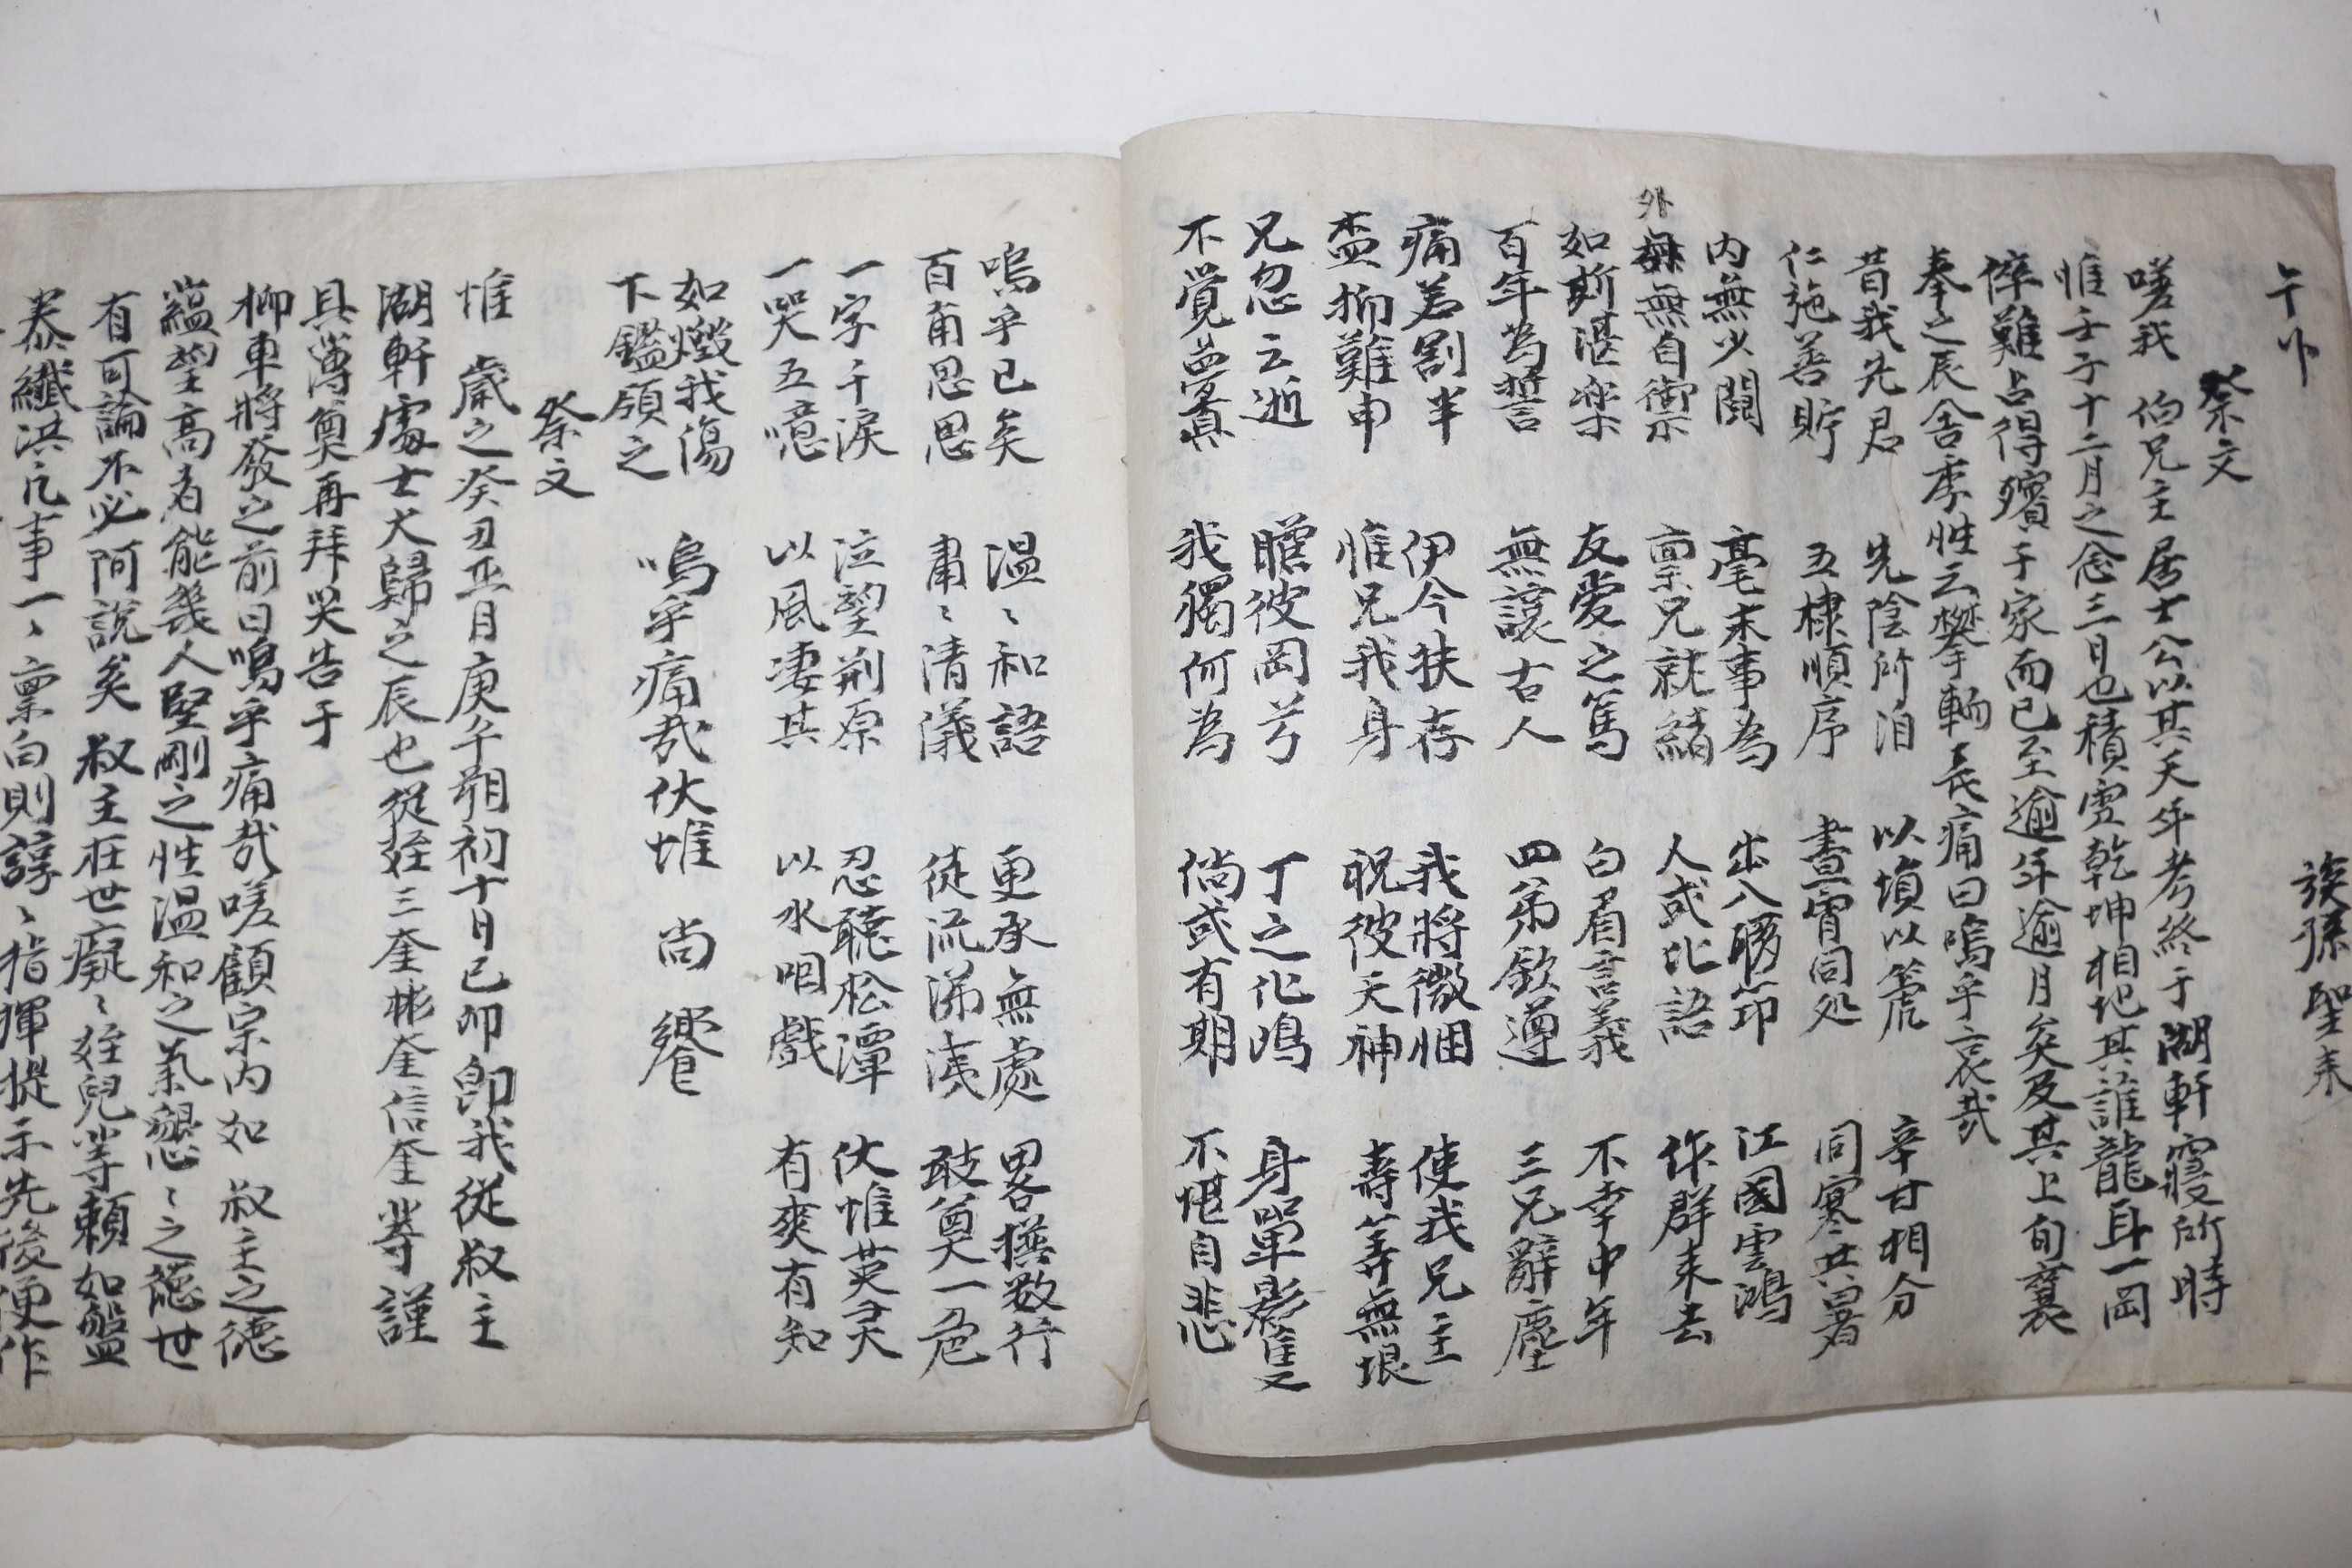 午小
族孫聖來
祭文
嗟我 伯兄主居士公以其天年考終于湖軒寢所時
惟壬子十二月之念三日也積雪乾坤相地其誰龍耳一岡
倅難占得殯于家而已至逾年逾月矣及其上旬襄
奉之辰舍季性云攀輀長痛曰嗚乎哀哉
昔我先君 先陰所洎 以塤以篪 辛甘相分
仁施善貯 五棣順序 晝宵同処 同寒共暑
內無少鬩 毫末事為 出入 節 江園雲鴻
外無自禦 禀兄就緒 人或比語 作群來去
如斯湛樂 友愛之篤 白眉言義 不幸中年
百年為誓 無讓古人 四弟欽遵 三兄辭塵
痛若割半 伊今扶存 我將微悃 使我兄主
盃抑難申 惟兄我身 祝彼天神 壽算無垠
兄忽云逝 瞻彼岡兮 丁之化鳴 身單影隻
不覺夢真 我獨何為 倘或有期 不堪自悲
嗚乎已矣 温〻和語 更承無處 畧撰数行
百甭思思 肅〻清儀 徒流涕洟 敢奠一卮
一字千淚 泣望荊原 忍聽松潭 伏惟英灵
一哭五噫 以風凄其 以水咽戲 有爽有知
如燬我傷
下鑑領之 嗚乎痛哉伏惟 尚 饗
祭文
惟 歲之癸丑正月庚午朔初十日己卯即我從叔主
湖軒處士大歸之辰也從姪三奎彬奎信奎等謹
具薄奠再拜哭告于
柳車將發之前曰嗚乎痛哉嗟顧宗內如 叔主之德
蘊望高者能幾人堅剛之性温和之氣懇〻之 世
有可論不必阿說矣 叔主在世癡〻姪兒等賴如盤
泰纖洪凢事一〻禀白則諄〻指揮提示先後便作